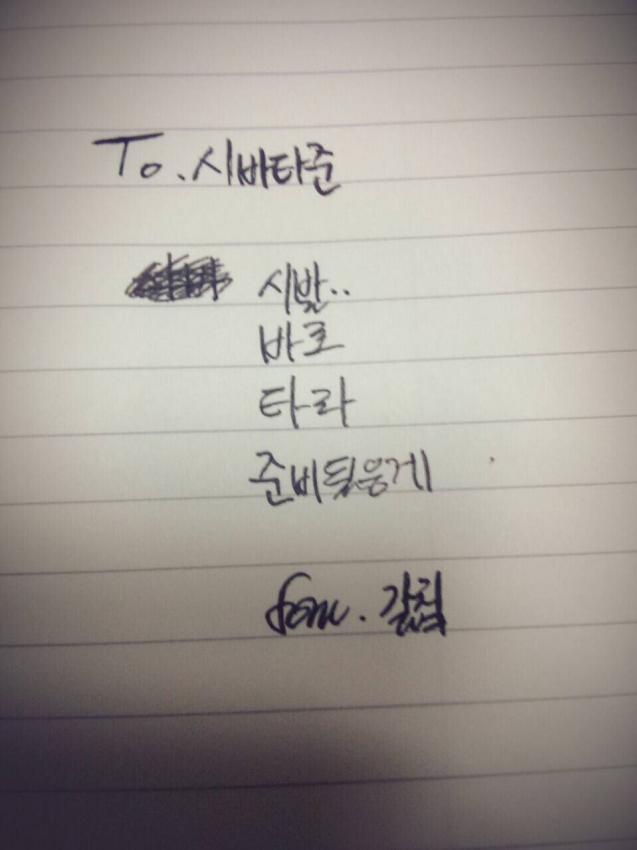 To. 시바타준
시발..
바로
타라
준비됬응게
from. 갈첩